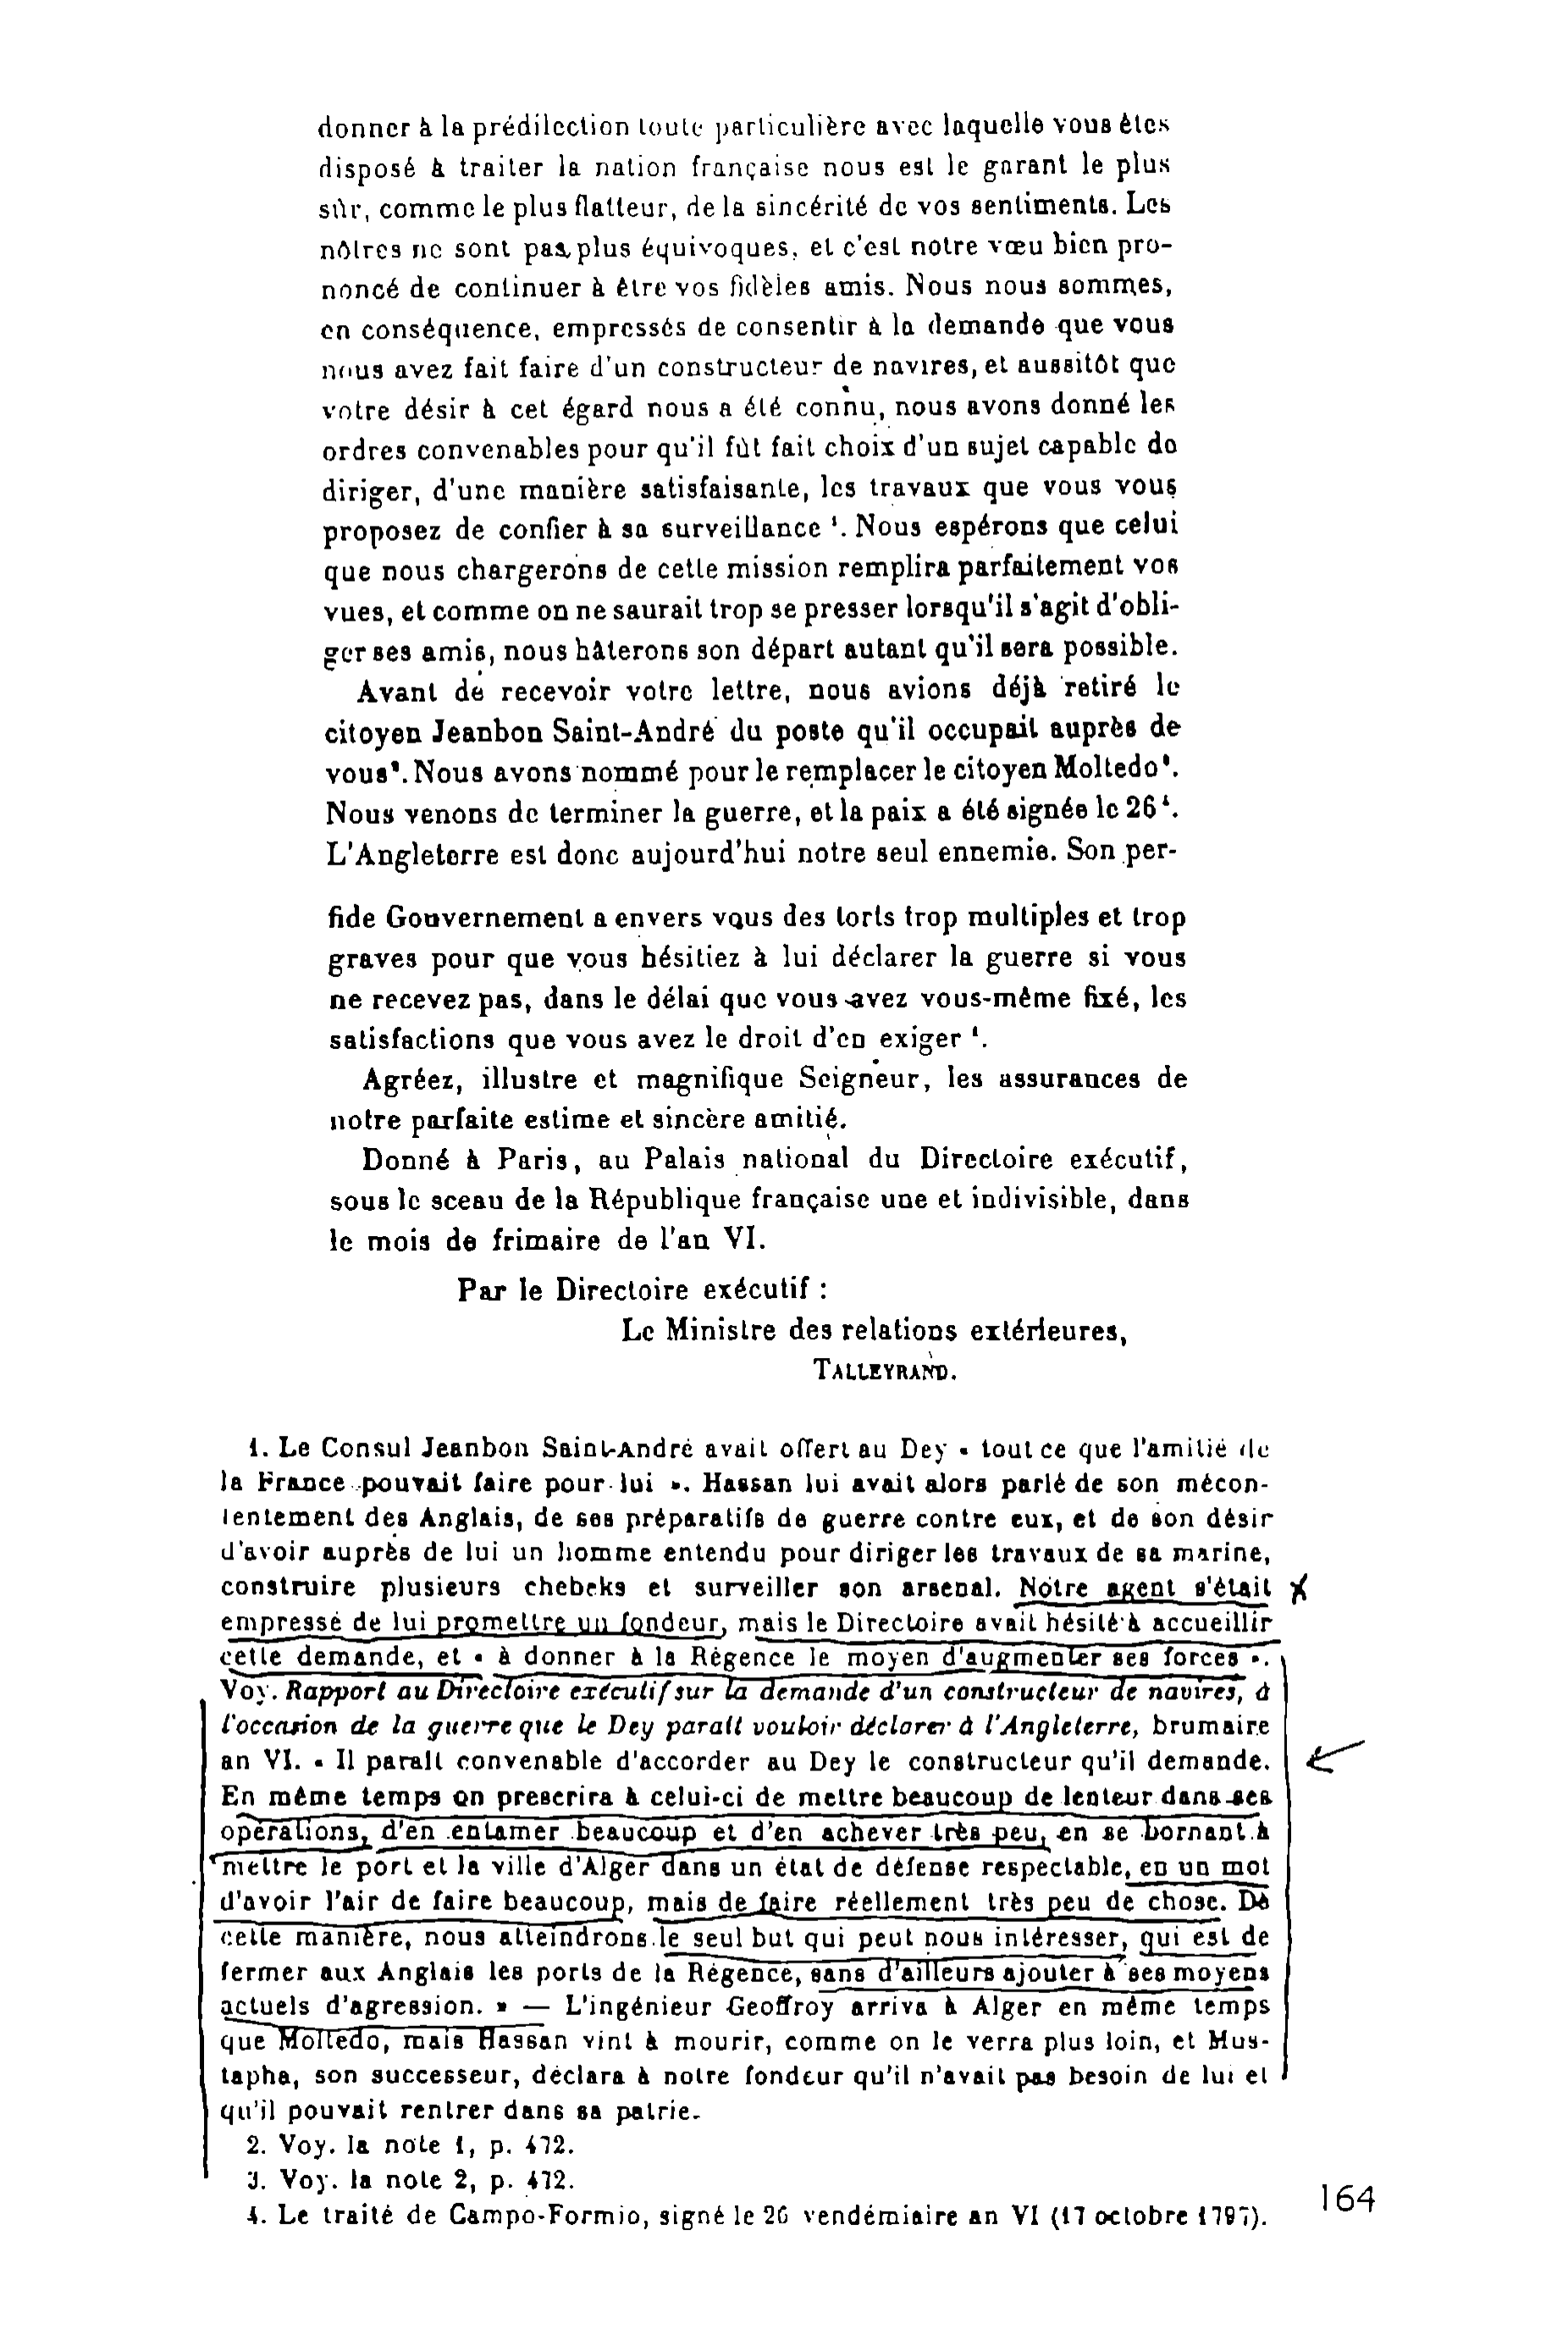 donner à la prédilection toute particulière avec laquelle vous êtes
disposé à traiter la nation française nous est le garant le plus
sûr, comme le plus flatteur, de la sincérité de vos sentiments. Les
nôtres ne sont pas plus équivoques, et c'est notre vœu bien pro-
noncé de continuer à être vos fidèles amis. Nous nous sommes,
en conséquence, empressés de consentir à la demande que vous
nous avez fait faire d'un constructeur de navires, et aussitôt que
votre désir à cet égard nous a été connu, nous avons donné les
ordres convenables pour qu'il fût fait choix d'un sujet capable de
diriger, d'une manière satisfaisante, les travaux que vous vous
proposez de confier à sa surveillance ¹. Nous espérons que celui
que nous chargerons de cette mission remplira parfaitement vos
vues, et comme on ne saurait trop se presser lorsqu'il s'agit d'obli-
ger ses amis, nous hâterons son départ autant qu'il sera possible.
Avant de recevoir votre lettre, nous avions déjà retiré le
citoyen Jeanbon Saint-André du poste qu'il occupait auprès de
vous². Nous avons nommé pour le remplacer le citoyen Moltedo³.
Nous venons de terminer la guerre, et la paix a été signée le 26⁴.
L'Angleterre est donc aujourd'hui notre seul ennemie. Son per-
fide Gouvernement a envers vous des torts trop multiples et trop
graves pour que vous hésitiez à lui déclarer la guerre si vous
ne recevez pas, dans le délai que vous avez vous-même fixé, les
satisfactions que vous avez le droit d'en exiger ¹.
Agréez, illustre et magnifique Seigneur, les assurances de
notre parfaite estime et sincère amitié.
Donné à Paris, au Palais national du Directoire exécutif,
sous le sceau de la République française une et indivisible, dans
le mois de frimaire de l'an VI.
Par le Directoire exécutif :
Le Ministre des relations extérieures,
TALLEYRAND.
1. Le Consul Jeanbon Saint-André avait offert au Dey « tout ce que l'amitié de
la France pouvait faire pour lui ». Hassan lui avait alors parlé de son mécon-
tentement des Anglais, de ses préparatifs de guerre contre eux, et de son désir
d'avoir auprès de lui un homme entendu pour diriger les travaux de sa marine,
construire plusieurs chebeks et surveiller son arsenal. Notre agent s'était
empressé de lui promettre un fondeur, mais le Directoire avait hésité à accueillir
cette demande, et « à donner à la Régence le moyen d'augmenter ses forces ».
Voy. Rapport au Directoire exécutif sur la demande d'un constructeur de navires, à
l'occasion de la guerre que le Dey paraît vouloir déclarer à l'Angleterre, brumaire
an VI. « Il paraît convenable d'accorder au Dey le constructeur qu'il demande.
En même temps on prescrira à celui-ci de mettre beaucoup de lenteur dans ses
opérations, d'en entamer beaucoup et d'en achever très peu, en se bornant à
mettre le port et la ville d'Alger dans un état de défense respectable, en un mot
d'avoir l'air de faire beaucoup, mais de faire réellement très peu de chose. De
cette manière, nous atteindrons le seul but qui peut nous intéresser, qui est de
fermer aux Anglais les ports de la Régence, sans d'ailleurs ajouter à ses moyens
actuels d'agression. » — L'ingénieur Geoffroy arriva à Alger en même temps
que Moltedo, mais Hassan vint à mourir, comme on le verra plus loin, et Mus-
tapha, son successeur, déclara à notre fondeur qu'il n'avait pas besoin de lui et
qu'il pouvait rentrer dans sa patrie.
2. Voy. la note 1, p. 472.
3. Voy. la note 2, p. 472.
4. Le traité de Campo-Formio, signé le 26 vendémiaire an VI (17 octobre 1797).
164